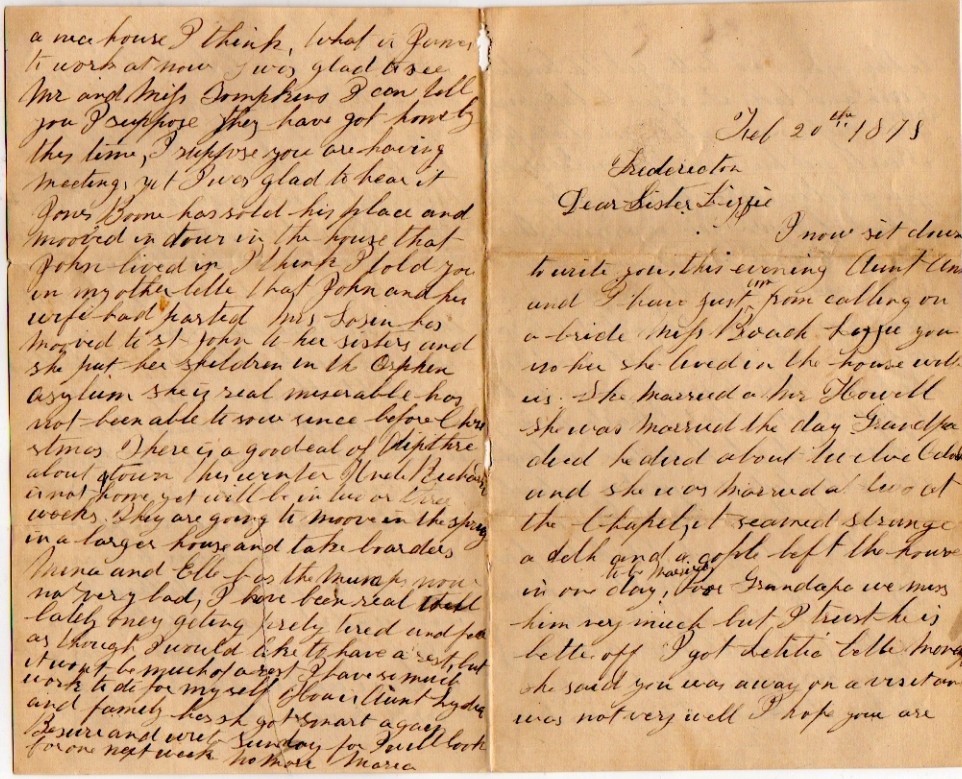 Feb 20th 1878
Fredericton
Dear Sister Lizzie
I now sit down
to write you this evening Aunt Ann
and I have just come in from calling on
a bride Miss Roach Lizzie you
no her she lived in the house with
us. She married a Mr Howell
she was married the day Grandpa
died he died about twelve Oclock
and she was married at two at
the Chapel, it seamed strange
a deth and a cople left the house
in one day, to be married Poor Grandapa we miss
him very much but I trust he is
better off I got Letitia lette
she said you was away on a visit an
was not very well I hope you are
a nice house I think, What is James
to work at now I was glad to see
Mr and Miss Tompkins I can tell
you I suppose they have got home by
this time, I suppose you are having
meetings yet I was glad to hear it
Boone has sold his place and
mooved in our in the house that
John lived in I think I told you
in my other lette that John and his
wife had parted Mrs has
mooved to st John to her sisters and
she put her children in the Orphen
asylum she is real miserable has
not been able to sow sence before Chri
stmas There is a goodeal of Dipthre
about town this winter Uncle
is not home yet will be in two or three
weeks. They are going to moove in the spring
in a larger house and take boarders
and has the now
not very bad, I have been real well
lately oney geting tired and feel
as though I would like to have a rest, but
it wont be much of a rest I have so much
work to do for myself How is Aunt Lydia
and family has she got smart again
Be sure and write Sunday for I will look
for one next week no more Maria